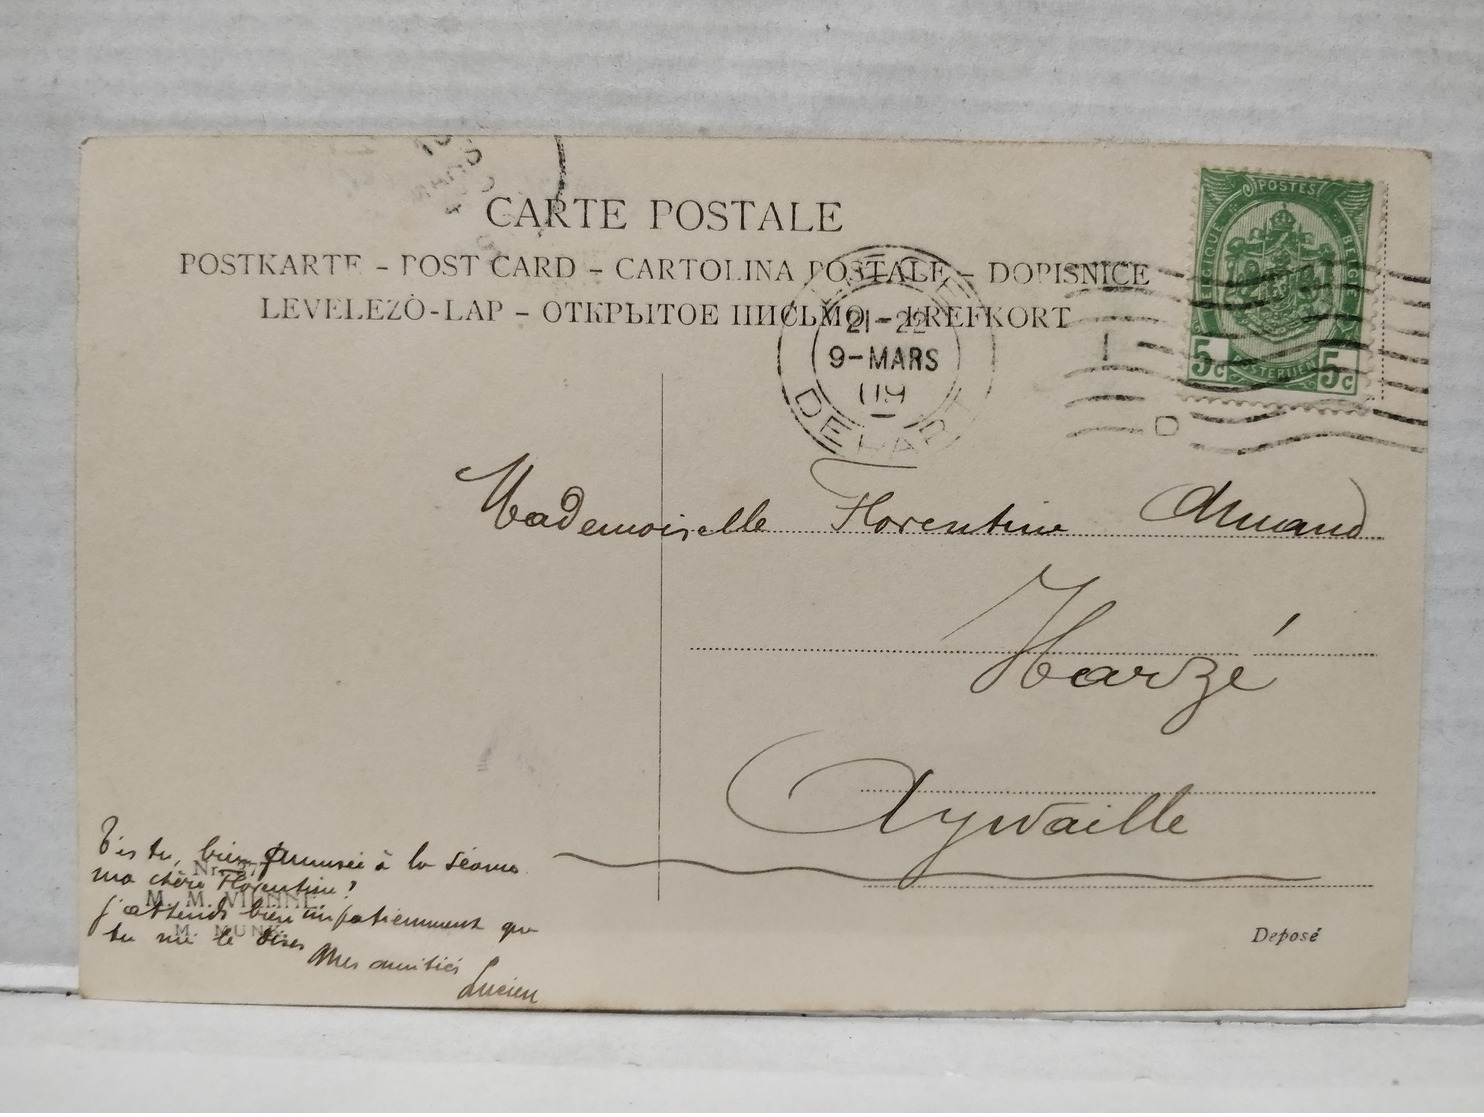 CARTE POSTALE
POSTKARTE - POST CARD - CARTOLINA POSTALE - DOPISNICE
LEVELEZÒ-LAP - ОТКРЫТОЕ ПИСЬМО - BREFKORT
POSTES
BELGIQUE
BELGIË
POSTERIJEN
5c 5c
21-22
9-MARS
09
DEPART
Mademoiselle Florentine
Harzé
Aywaille
T'es tu, bien amusée à la séance
ma chère Florentine?
j'attends bien impatiemment que
tu me le dises
Mes amitiés
Lucien
Nr.
M. M. VIENNE
M. MUNK
Deposé